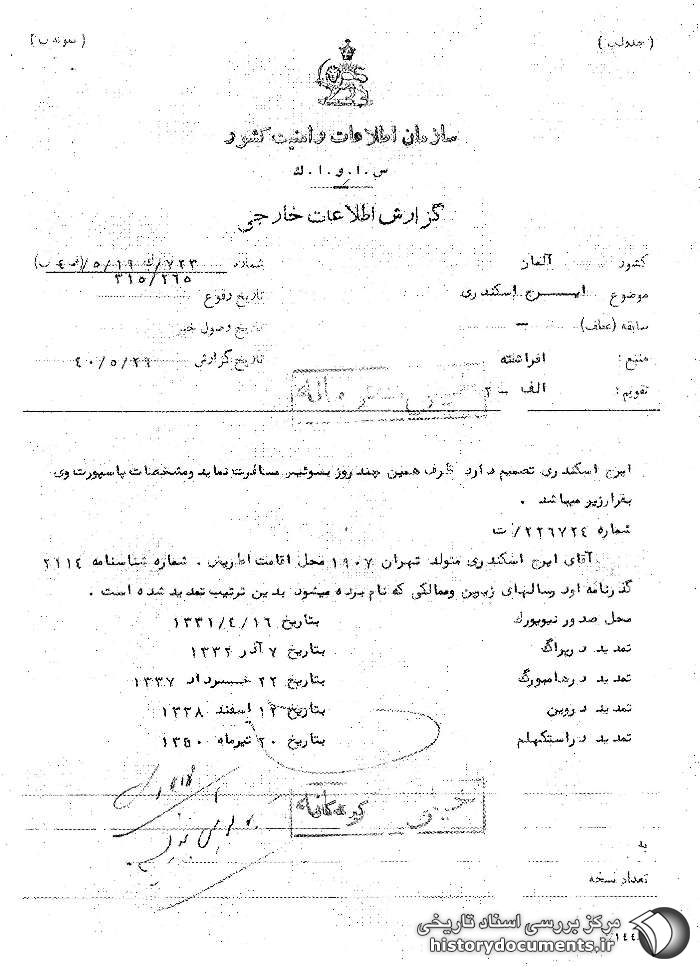 (جدول ب) (نمونه ب)
سازمان اطلاعات و امنیت کشور
س.ا.و.ا.ك
گزارش اطلاعات خارجی
کشور آلمان
شماره ۷۲۳/
۳۱۵/۲۶۵
موضوع ایرج اسکندری
تاریخ وقوع
سابقه (عطف) –
تاریخ وصول خبر
منبع: افراشته
تاریخ گزارش ۴۰/۵/۲۹
تقویم: الف – ۲
خیلی محرمانه
ایرج اسکندری تصمیم دارد ظرف همین چند روز بسوئیس مسافرت نماید ومشخصات پاسپورت وی
بقرارزیر میباشد .
شماره ۲۲۶۷۲۴/ت
آقای ایرج اسکندری متولد تهران ۱۹۰۷ محل اقامت اطریش . شماره شناسنامه ۲۱۱۴
گذرنامه اود رسالهای زیرین وممالکی که نام برده میشود بدین ترتیب تمدید شده است .
محل صدور نیویورک بتاریخ ۱۳۳۱/۴/۱۶
تمدید درپراگ بتاریخ ۷ آذر ۱۳۳۲
تمدید درهامبورگ بتاریخ ۲۲ خرداد ۱۳۳۷
تمدید دروین بتاریخ ۱۲ اسفند ۱۳۳۸
تمدید دراستکهلم بتاریخ ۲۰ تیرماه ۱۳۵۰
خیلی محرمانه
به
تعداد نسخه
مرکز بررسی اسناد تاریخی
historydocuments.ir